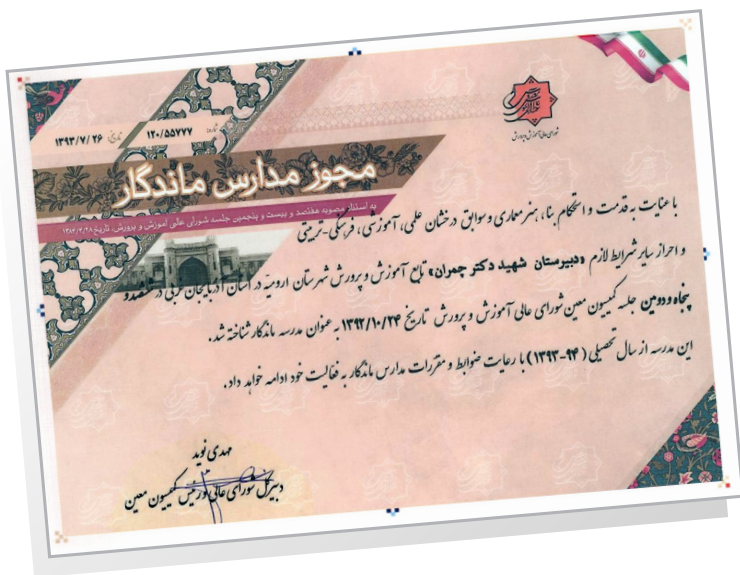 شورای عالی آموزش و پرورش
شماره: ۱۲۰/۵۵۷۷۷
تاریخ: ۱۳۹۳/۷/۲۶
مجوز مدارس ماندگار
به استناد مصوبه هفتصد و بیست و پنجمین جلسه شورای عالی آموزش و پرورش، تاریخ ۱۳۸۶/۲/۲۸
با عنایت به قدمت و استحکام بنا، هنر معماری و سوابق درخشان علمی، آموزشی، فرهنگی-تربیتی
و احراز سایر شرایط لازم «دبیرستان شهید دکتر چمران» تابع آموزش و پرورش شهرستان ارومیه در استان آذربایجان غربی در ششصد و
پنجاه و دومین جلسه کمیسیون معین شورای عالی آموزش و پرورش تاریخ ۱۳۹۲/۱۰/۲۴ به عنوان مدرسه ماندگار شناخته شد.
این مدرسه از سال تحصیلی (۹۴-۱۳۹۳) با رعایت ضوابط و مقررات مدارس ماندگار به فعالیت خود ادامه خواهد داد.
مهدی نوید
دبیر کل شورای عالی و رئیس کمیسیون معین